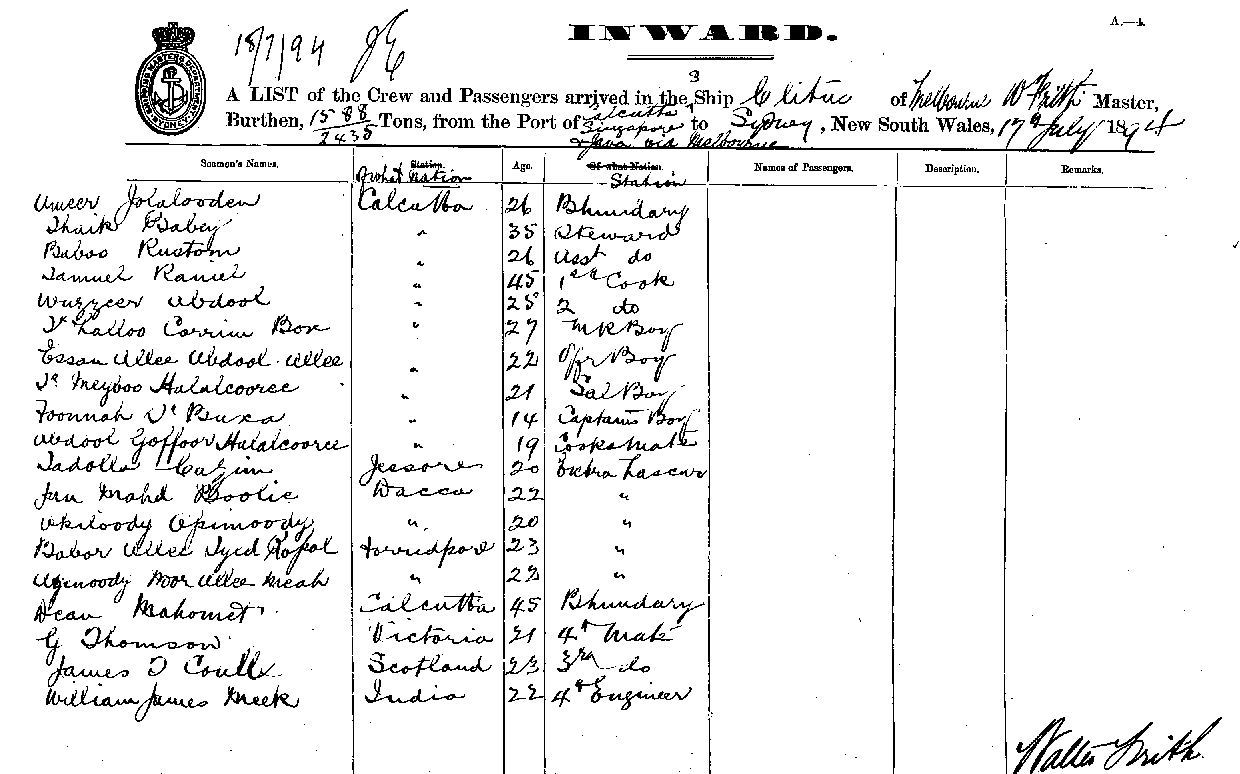 INWARD.
A.—4.
18/7/94
3
A LIST of the Crew and Passengers arrived in the Ship Clitus of Melbourne W Frith Master,
Burthen, 1588 / 2435 Tons, from the Port of Calcutta Singapore & Java via Melbourne to Sydney, New South Wales, 17th July 1894
Seamen's Names. Station. of what Nation Age. Of what Nation. Station Names of Passengers. Description. Remarks.
Ameer Jolalooden Calcutta 26 Bhundary
Shaik Babey " 35 Steward
Baboo Rustom " 26 Asst do
Samuel Raniel " 45 1st Cook
Wuzzeer Abdool " 25 2 do
Sk Lalloo Carrim Box " 27 M R Boy
Essan Allee Abdool Allee " 22 Offr Boy
Sk Meyboo Halalcooree " 21 Sal Boy
Toonnah Sk Buxa " 14 Captains Boy
Abdool Goffoor Halalcooree " 19 Cooks Mate
Sadolla Cazim Jessore 20 Extra Lascar
Jan Mahd Boolie Dacca 22 "
Akiloody Apimoody " 20 "
Babor Allee Syed Gopal Forridpore 23 "
Azimoody Noor Allee Meah " 22 "
Dean Mahomet Calcutta 45 Bhundary
G Thomson Victoria 21 4th Mate
James T Coull Scotland 23 3rd do
William James Meek India 22 4th Engineer
Walter Frith